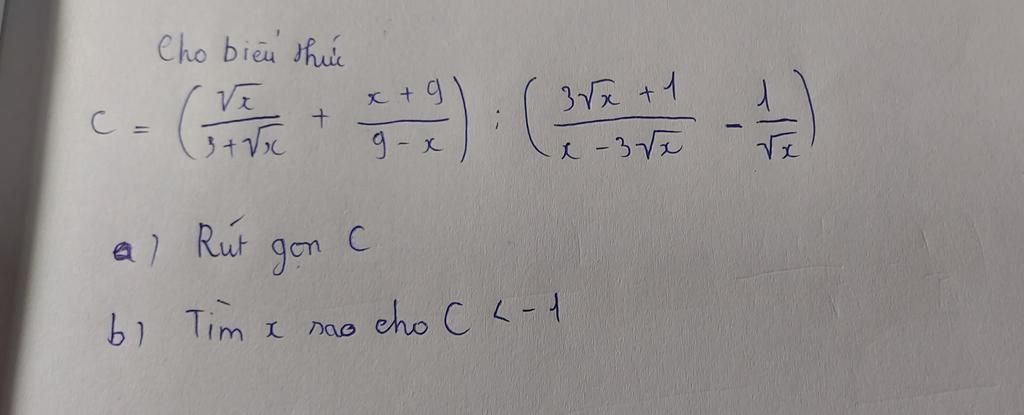 Cho biểu thức
C = ( √x / (3+√x) + (x + 9) / (9 - x) ) : ( (3√x + 1) / (x - 3√x) - 1 / √x )
a) Rút gọn C
b) Tìm x sao cho C < -1